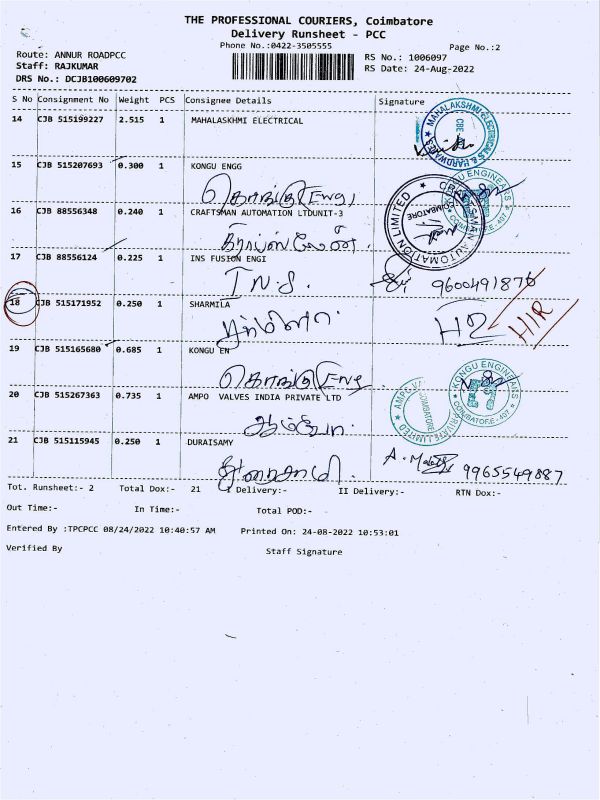 THE PROFESSIONAL COURIERS, Coimbatore
Delivery Runsheet - PCC
Phone No.:0422-3505555
Page No.:2
Route: ANNUR ROADPCC
Staff: RAJKUMAR
DRS No.: DCJB100609702
RS No.: 1006097
RS Date: 24-Aug-2022
S No Consignment No Weight PCS Consignee Details Signature
14 CJB 515199227 2.515 1 MAHALASKHMI ELECTRICAL
MAHALAKSHMI ELECTRICALS & HARDWARES
CBE
15 CJB 515207693 0.300 1 KONGU ENGG
கொங்கு Eng
KONGU ENGINEARS
COIMBATORE-407
16 CJB 88556348 0.240 1 CRAFTSMAN AUTOMATION LTDUNIT-3
CRAFTSMAN AUTOMATION LIMITED
COIMBATORE
17 CJB 88556124 0.225 1 INS FUSION ENGI
I.N.S. 9600491876
18 CJB 515171952 0.250 1 SHARMILA
சர்மிளா H2 H/R
19 CJB 515165680 0.685 1 KONGU EN
கொங்கு Eng
KONGU ENGINEARS
COIMBATORE-407
20 CJB 515267363 0.735 1 AMPO VALVES INDIA PRIVATE LTD
PRIVATE LIMITED
COIMBATORE
21 CJB 515115945 0.250 1 DURAISAMY
துரைசாமி. 9965549887
Tot. Runsheet:- 2 Total Dox:- 21 I Delivery:- II Delivery:- RTN Dox:-
Out Time:- In Time:- Total POD:-
Entered By :TPCPCC 08/24/2022 10:40:57 AM Printed On: 24-08-2022 10:53:01
Verified By Staff Signature